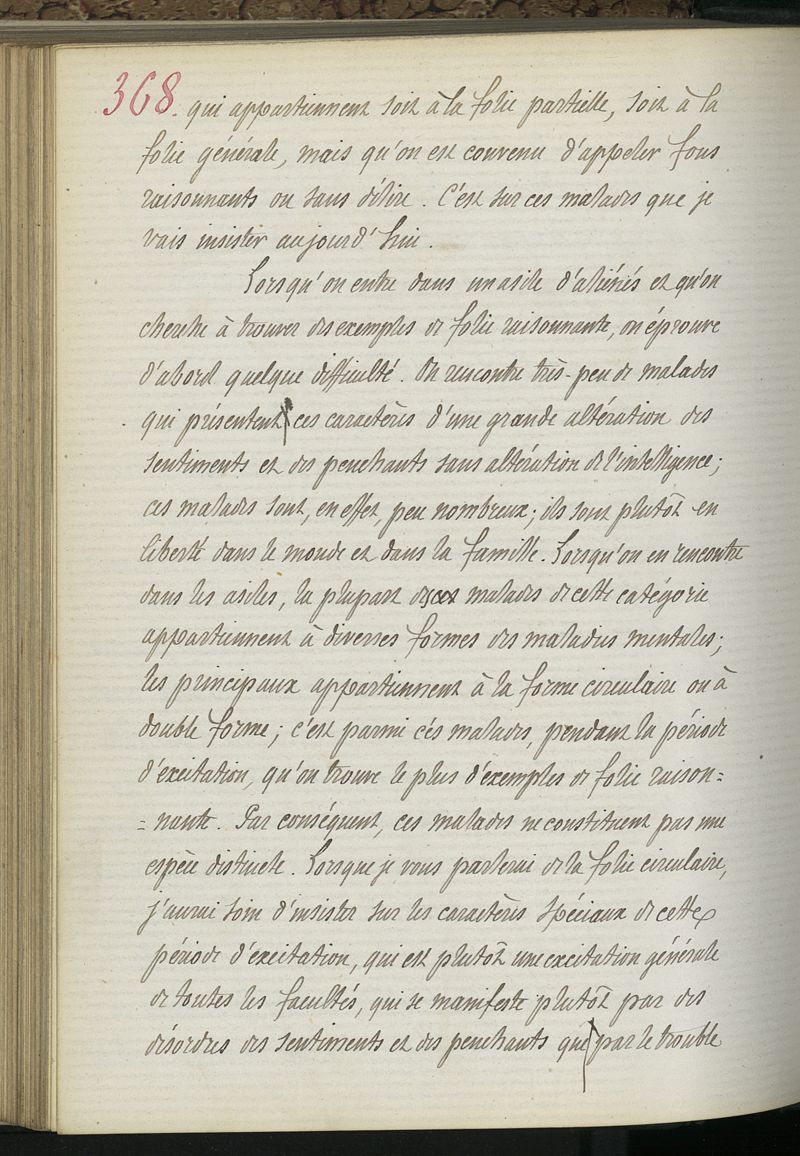 368. qui appartiennent soit à la folie partielle, soit à la
folie générale, mais qu'on est convenu d'appeler fous
raisonnants ou sans délire. C'est sur ces malades que je
vais insister aujourd'hui.
Lorsqu'on entre dans un asile d'aliénés et qu'on
cherche à trouver des exemples de folie raisonnante, on éprouve
d'abord quelque difficulté. On rencontre très-peu de malades
qui présentent ces caractères d'une grande altération des
sentiments et des penchants sans altération de l'intelligence;
ces malades sont, en effet, peu nombreux; ils sont plutôt en
liberté dans le monde et dans la famille. Lorsqu'on en rencontre
dans les asiles, la plupart des malades de cette catégorie
appartiennent à diverses formes des maladies mentales;
les principaux appartiennent à la forme circulaire ou à
double forme; c'est parmi ces malades, pendant la période
d'excitation, qu'on trouve le plus d'exemples de folie raison=
=nante. Par conséquent, ces malades ne constituent pas une
espèce distincte. Lorsque je vous parlerai de la folie circulaire,
j'aurai soin d'insister sur les caractères spéciaux de cette
période d'excitation, qui est plutôt une excitation générale
de toutes les facultés, qui se manifeste plutôt par des
désordres des sentiments et des penchants que par le trouble